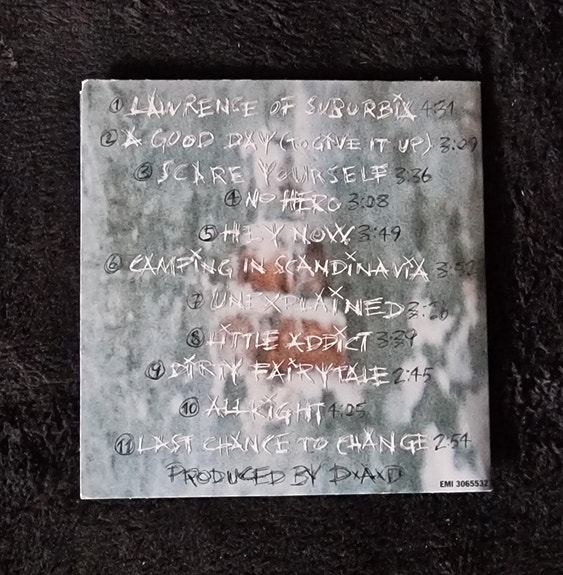 1 LAWRENSE OF SUBURBIA 4:31
2 A GOOD DAY (TO GIVE IT UP) 3:09
3 SCARE YOURSELF 3:36
4 NO HERO 3:08
5 HEY NOW 3:49
6 CAMPING IN SCANDINAVIA 3:52
7 UNEXPLAINED 3:26
8 LITTLE ADDICT 3:39
9 DIRTY FAIRYTALE 2:45
10 ALLRIGHT 4:05
11 LAST CHANCE TO CHANGE 2:54
PRODUCED BY DXAXD
EMI 3065532